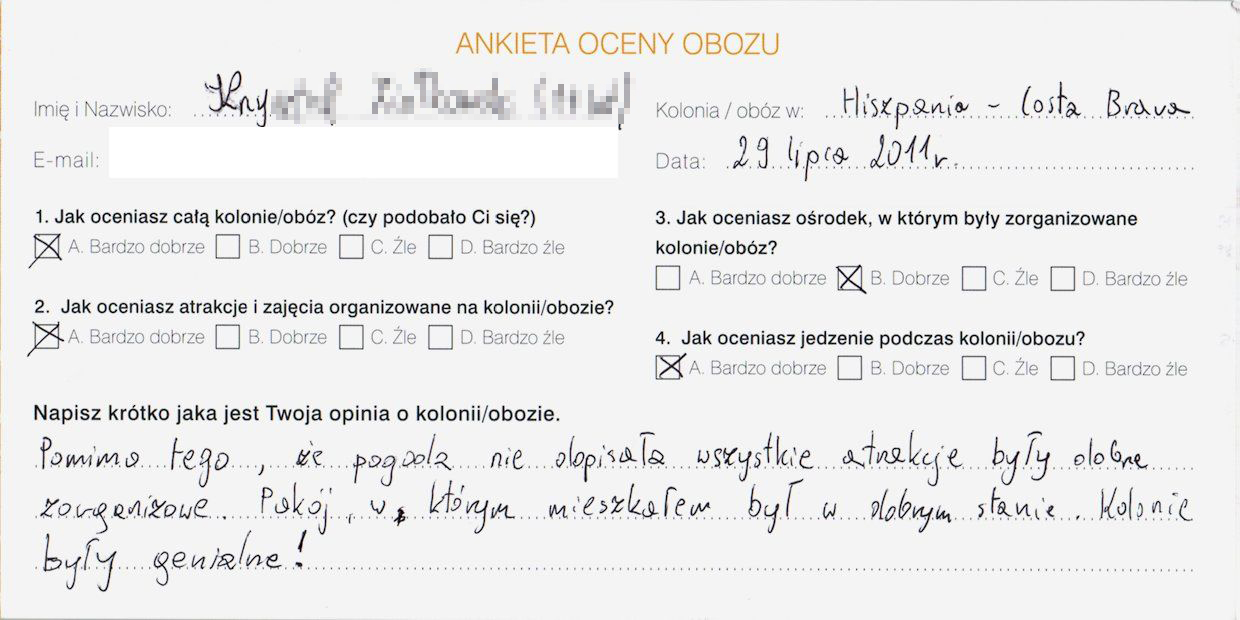 ANKIETA OCENY OBOZU
Imię i Nazwisko:
Kolonia / obóz w: Hiszpania - Costa Brava
E-mail:
Data: 29 lipca 2011r.
1. Jak oceniasz całą kolonie/obóz? (czy podobało Ci się?)
A. Bardzo dobrze B. Dobrze C. Źle D. Bardzo źle
2. Jak oceniasz atrakcje i zajęcia organizowane na kolonii/obozie?
A. Bardzo dobrze B. Dobrze C. Źle D. Bardzo źle
3. Jak oceniasz ośrodek, w którym były zorganizowane
kolonie/obóz?
A. Bardzo dobrze B. Dobrze C. Źle D. Bardzo źle
4. Jak oceniasz jedzenie podczas kolonii/obozu?
A. Bardzo dobrze B. Dobrze C. Źle D. Bardzo źle
Napisz krótko jaka jest Twoja opinia o kolonii/obozie.
Pomimo tego, że pogoda nie dopisała wszystkie atrakcje były dobrze
zorganizowe. Pokój, w którym mieszkałem był w dobrym stanie. Kolonie
były genialne!